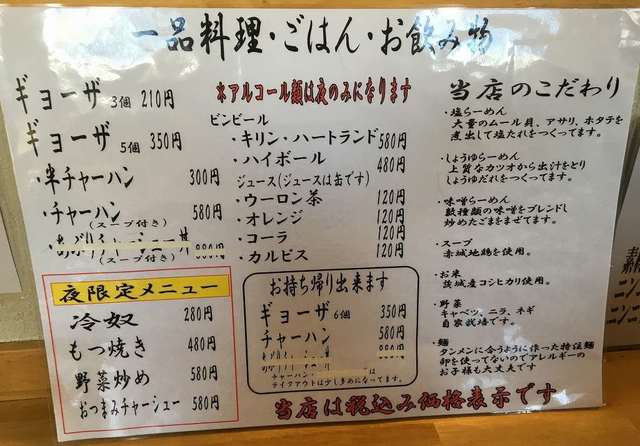 一品料理・ごはん・お飲み物
ギョーザ 3個 210円
ギョーザ 5個 350円
・半チャーハン 300円
・チャーハン 580円
(スープ付き)
(スープ付き)
夜限定メニュー
冷奴 280円
もつ焼き 480円
野菜炒め 580円
おつまみチャーシュー 580円
*アルコール類は夜のみになります
ビンビール
・キリン・ハートランド 580円
・ハイボール 480円
ジュース(ジュースは缶です)
・ウーロン茶 120円
・オレンジ 120円
・コーラ 120円
・カルピス 120円
お持ち帰り出来ます
ギョーザ 6個 350円
チャーハン 580円
チャーハン・
テイクアウトは少し多めになってます。
当店のこだわり
・塩らーめん
大量のムール貝、アサリ、ホタテを
煮出して塩たれをつくってます。
・しょうゆらーめん
上質なカツオから出汁をとり
しょうゆだれをつくってます。
・味噌らーめん
数種類の味噌をブレンドし
炒めたごまをまぜてます。
・スープ
赤城地鶏を使用。
・お米
茨城産コシヒカリ使用。
・野菜
キャベツ、ニラ、ネギ
自家栽培です。
・麺
タンメンに合うように作った特注麺
卵を使ってないのでアレルギーの
お子様も大丈夫です
当店は税込み価格表示です